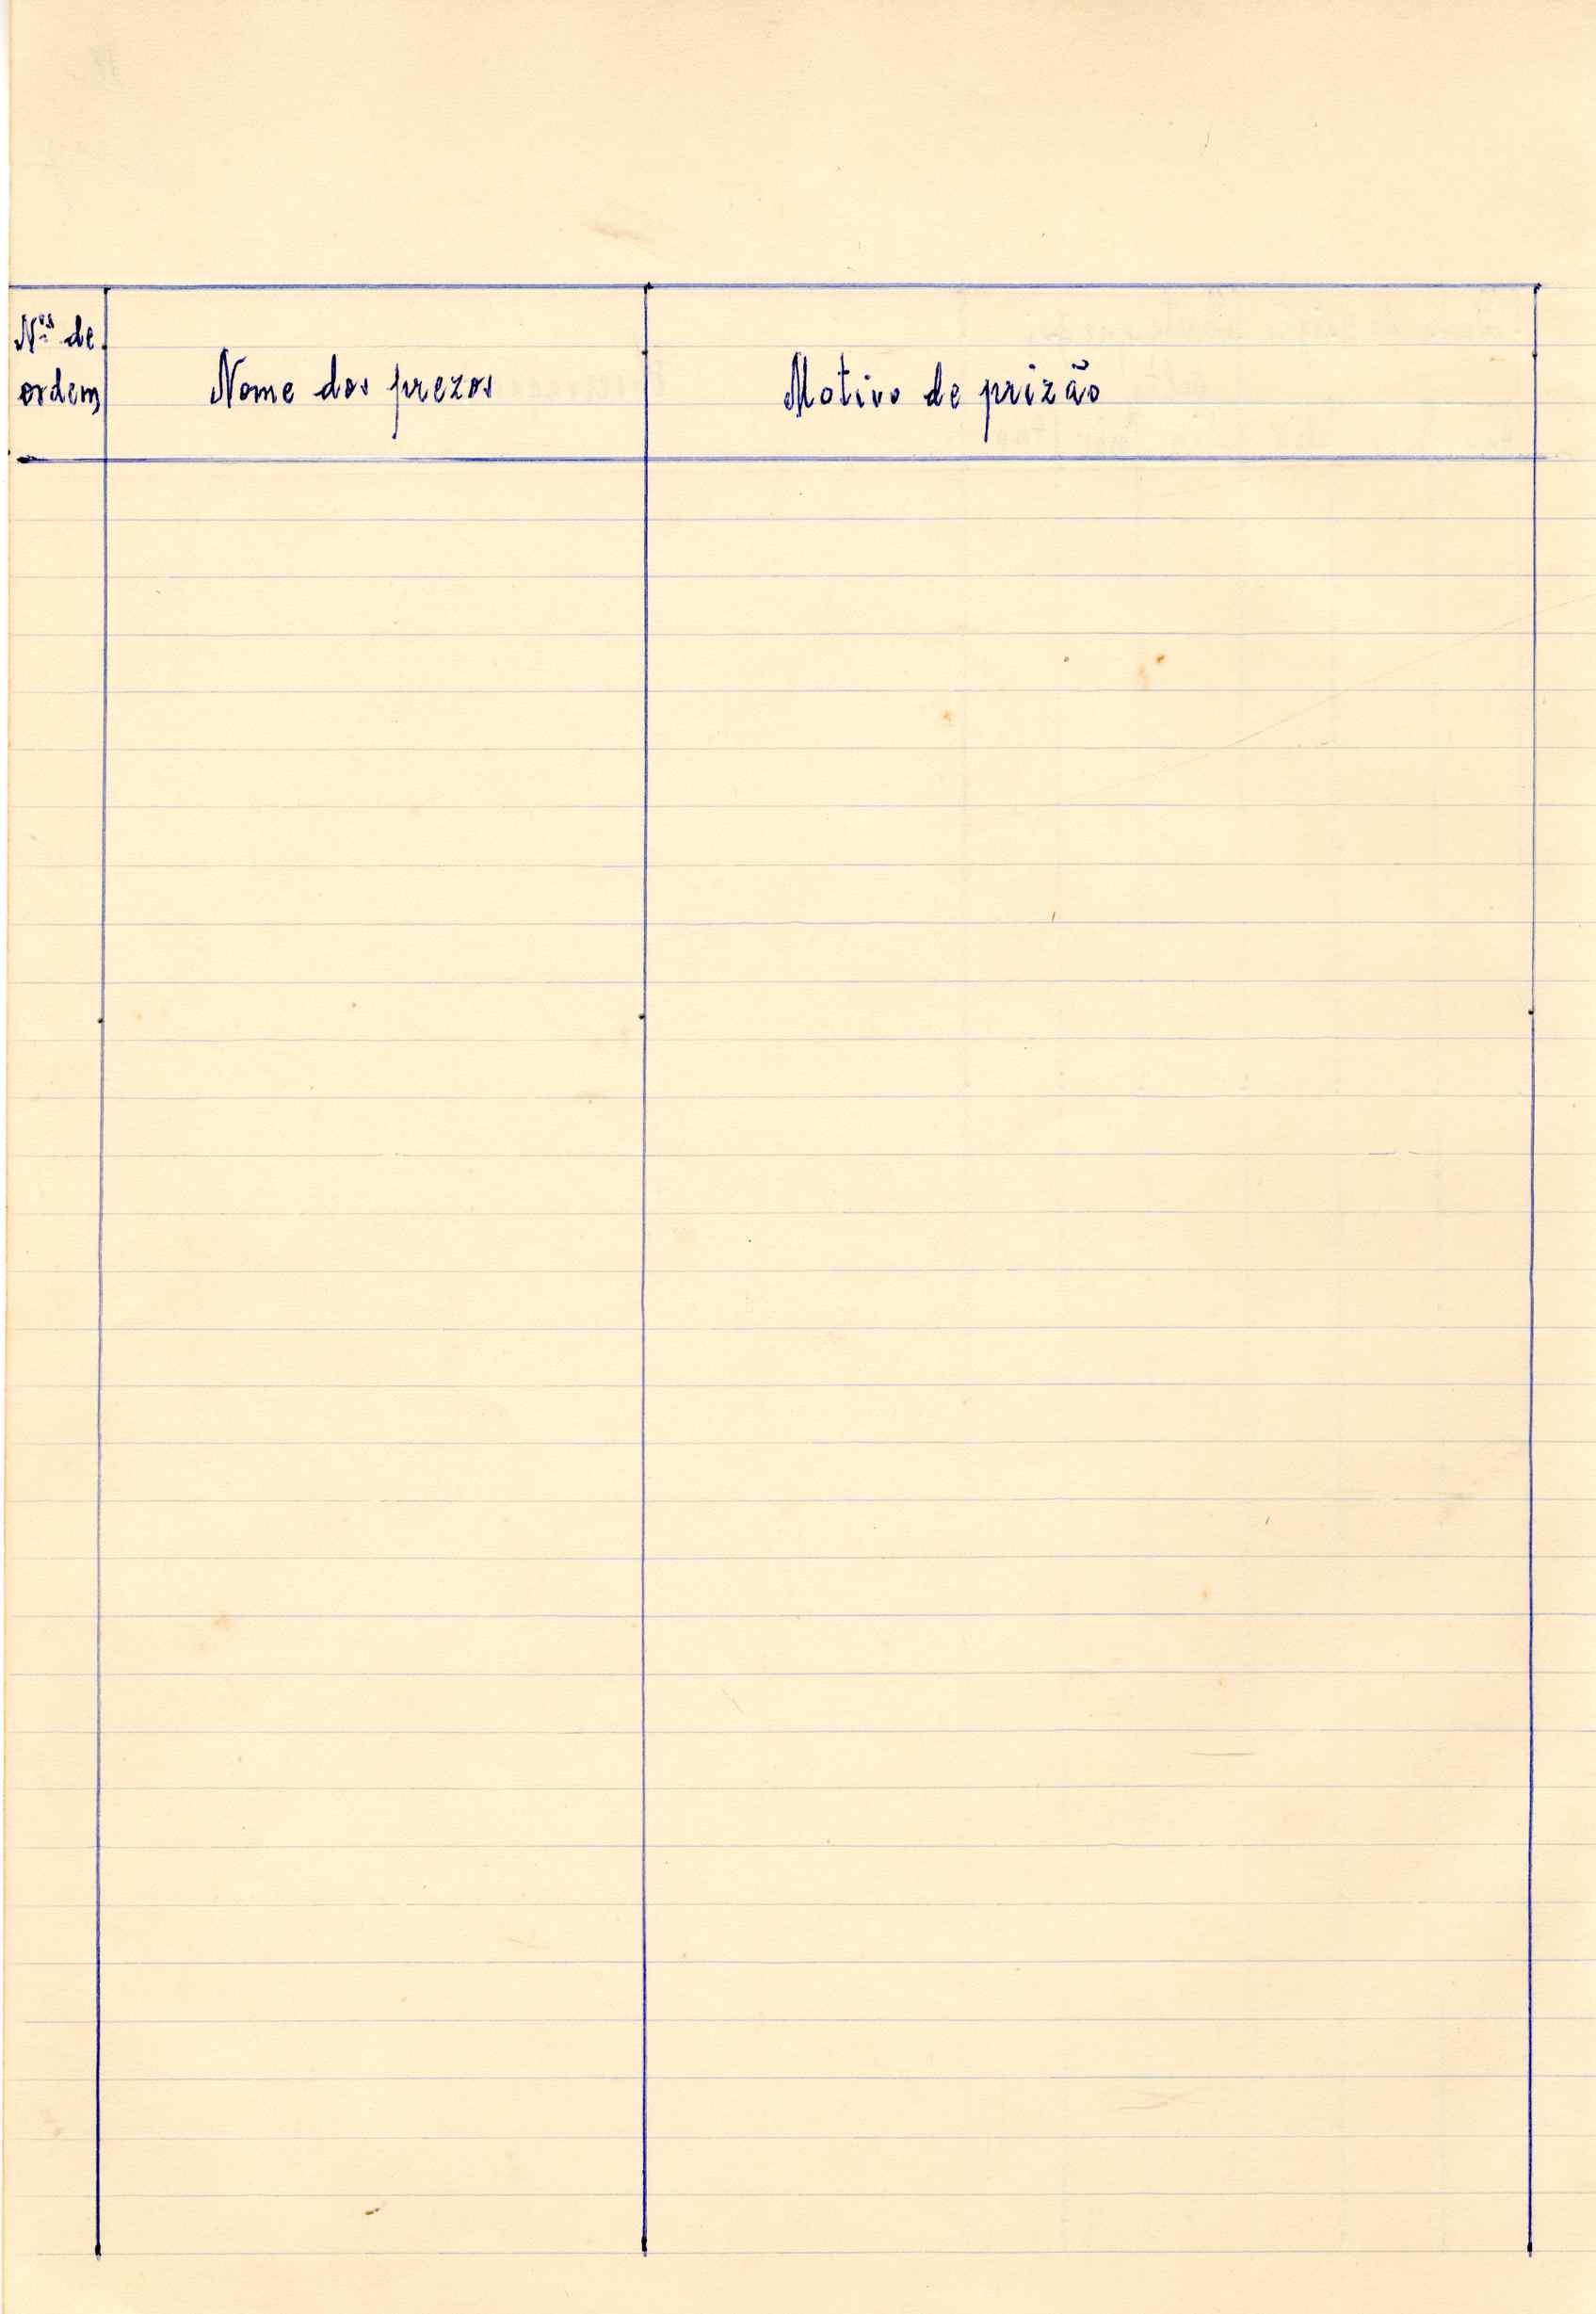 Nºs de
ordem
Nome dos prezos
Motivo de prizão